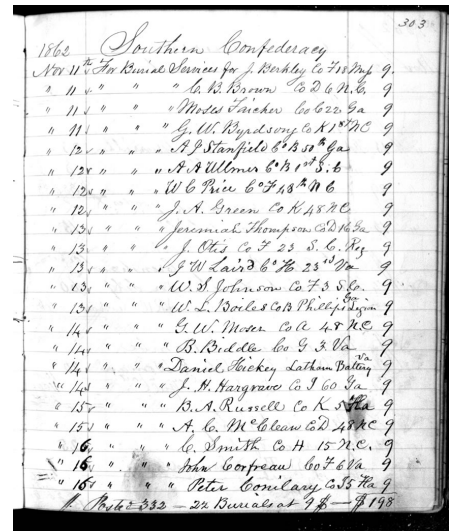 303
1862 Southern Confederacy
Nov 11th For Burial Services for J. Berkley Co F 18 Misp 9.
" 11 " " " C. B. Brown Co D 6 N.C. 9
" 11 " " " Moses Faicher Co C 22 Ga 9
" 11 " " " G. W. Byrdsong Co K 1st NC 9
" 12 " " " A J Stanfield Co B 50th Ga 9
" 12 " " " A A Ulmer Co B 1st S. C 9
" 12 " " " W C Price Co F 48th N C 9
" 12 " " " J. A. Green Co K 48 NC 9
" 13 " " " Jeremiah Thompson Co D 16 Ga 9
" 13 " " " J. Otis Co F 23 S. C. Reg 9
" 13 " " " J W Laird Co H. 23rd Va 9
" 13 " " " W. S. Johnson Co F 3 S Co. 9
" 13 " " " W. L. Boiles Co B Phillips Ga Legion 9
" 14 " " " G. W. Moser Co A 48 NC 9
" 14 " " " B. Biddle Co G 3 Va 9
" 14 " " " Daniel Hickey Latham Battery Va 9
" 14 " " " J. H. Hargrave Co I 60 Ga 9
" 15 " " " B. A. Russell Co K 5 Fla 9
" 15 " " " A. C. McClean Co D 48 NC 9
" 16 " " " C. Smith Co H 15 N.C. 9
" 16 " " " John Corfreau Co F 6 Va 9
" 16 " " " Peter Conilary Co I 5 Fla 9
332 — 22 Burials at 9 $ — $ 198